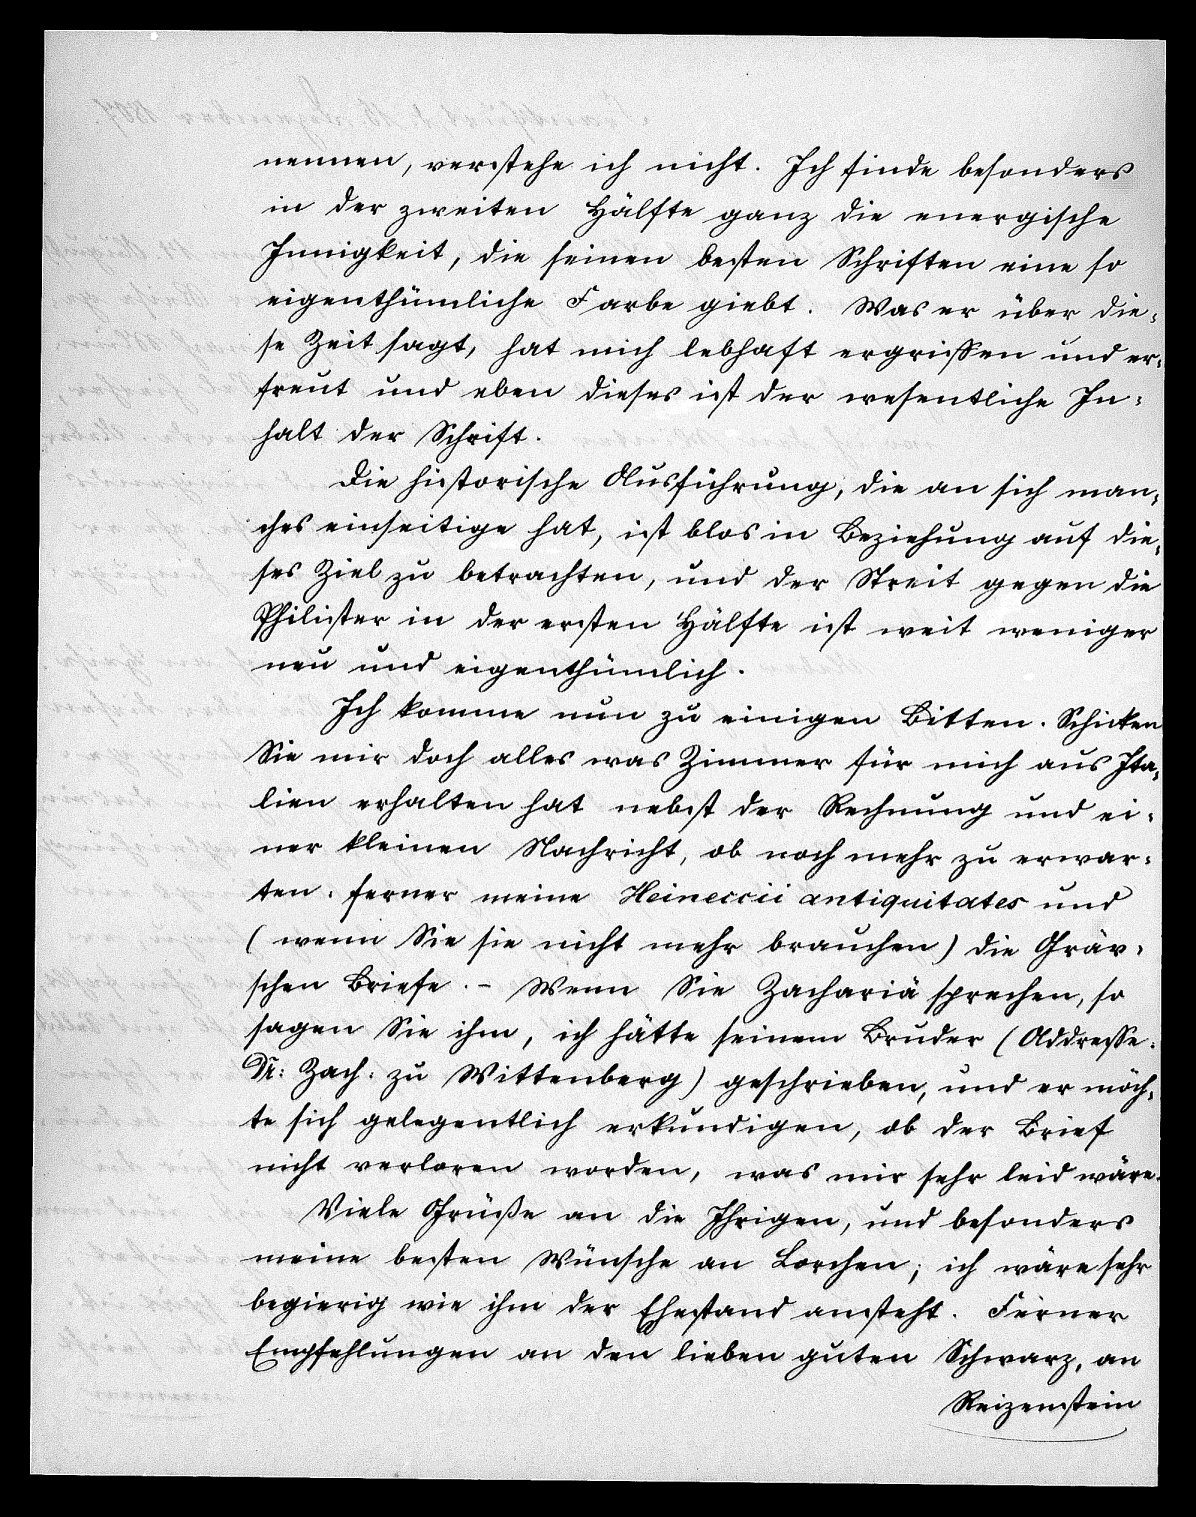 nennen, verstehe ich nicht. Ich finde besonders
in der zweiten Hälfte ganz die energische
Innigkeit, die seinen besten Schriften eine so
eigenthümliche Farbe giebt. Was er über die-
se Zeit sagt, hat mich lebhaft ergriffen und er-
freut und eben dieses ist der wesentliche In-
halt der Schrift.
Die historische Ausführung, die an sich man-
ches einseitige hat, ist blos in Beziehung auf die-
ses Ziel zu betrachten, und der Streit gegen die
Philister in der ersten Hälfte ist weit weniger
neu und eigenthümlich.
Ich komme nun zu einigen Bitten. Schicken
Sie mir doch alles was Zimmer für mich aus Ita-
lien erhalten hat nebst der Rechnung und ei-
ner kleinen Nachricht, ob noch mehr zu erwar-
ten. ferner meine Heineccii antiquitates und
(wenn Sie sie nicht mehr brauchen) die Gräv-
schen Briefe. – Wenn Sie Zachariä sprechen, so
sagen Sie ihm, ich hätte seinem Bruder (Addresse:
Dr: Zach: zu Wittenberg) geschrieben, und er möch-
te sich gelegentlich erkundigen, ob der Brief
nicht verloren worden, was mir sehr leid wäre.
Viele Grüße an die Ihrigen, und besonders
meine besten Wünsche an Lorchen; ich wäre sehr
begierig wie ihm der Ehestand ansteht. Ferner
Empfehlungen an den lieben guten Schwarz, an
Reizenstein